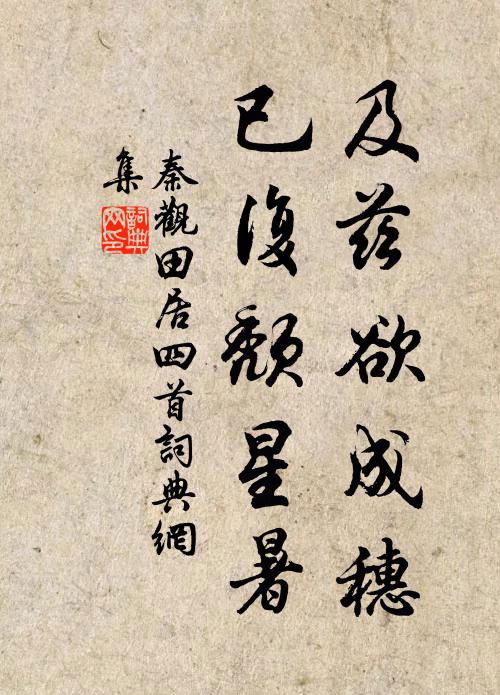 及茲欲成穗
已復頹星暑
秦觀田居四首詞典網
集
詞典
网印